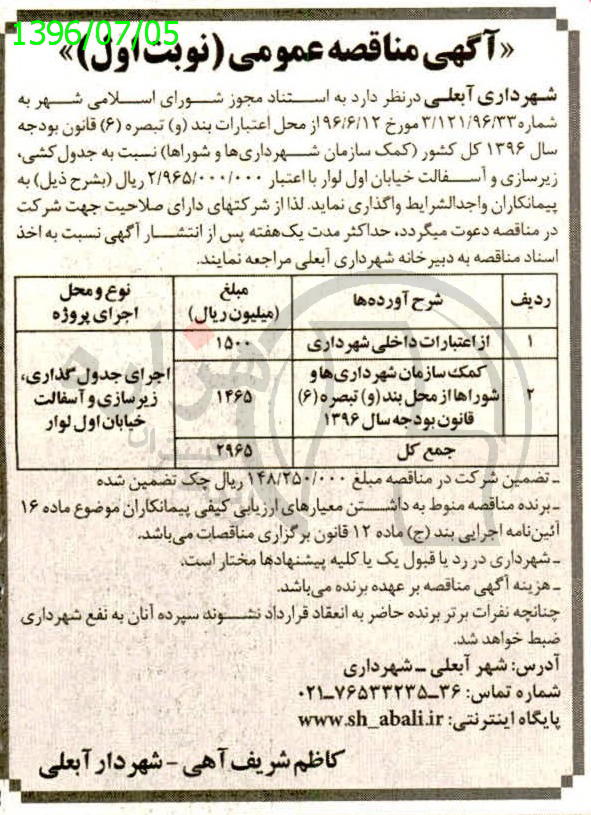 1396/07/05
«آگهی مناقصه عمومی (نوبت اول)»
شهرداری آبعلی درنظر دارد به استناد مجوز شورای اسلامی شهر به
شماره ۳/۱۲۱/۹۶/۳۳ مورخ ۹۶/۶/۱۲ از محل اعتبارات بند (و) تبصره (۶) قانون بودجه
سال ۱۳۹۶ کل کشور (کمک سازمان شهرداری‌ها و شوراها) نسبت به جدول کشی،
زیرسازی و آسفالت خیابان اول لوار با اعتبار ۲/۹۶۵/۰۰۰/۰۰۰ ریال (بشرح ذیل) به
پیمانکاران واجدالشرایط واگذاری نماید. لذا از شرکتهای دارای صلاحیت جهت شرکت
در مناقصه دعوت میگردد، حداکثر مدت یک‌هفته پس از انتشار آگهی نسبت به اخذ
اسناد مناقصه به دبیرخانه شهرداری آبعلی مراجعه نمایند.
ردیف شرح آورده‌ها مبلغ (میلیون ریال) نوع و محل اجرای پروژه
۱ از اعتبارات داخلی شهرداری ۱۵۰۰ اجرای جدول گذاری، زیرسازی و آسفالت خیابان اول لوار
۲ کمک سازمان شهرداری‌ها و شوراها از محل بند (و) تبصره (۶) قانون بودجه سال ۱۳۹۶ ۱۴۶۵
جمع کل ۲۹۶۵
ـ تضمین شرکت در مناقصه مبلغ ۱۴۸/۲۵۰/۰۰۰ ریال چک تضمین شده
ـ برنده مناقصه منوط به داشتن معیارهای ارزیابی کیفی پیمانکاران موضوع ماده ۱۶
آئین‌نامه اجرایی بند (ج) ماده ۱۲ قانون برگزاری مناقصات می‌باشد.
ـ شهرداری در رد یا قبول یک یا کلیه پیشنهادها مختار است.
ـ هزینه آگهی مناقصه بر عهده برنده می‌باشد.
چنانچه نفرات برتر برنده حاضر به انعقاد قرارداد نشوند سپرده آنان به نفع شهرداری
ضبط خواهد شد.
آدرس: شهر آبعلی ـ شهرداری
شماره تماس: ۳۶ـ۷۶۵۳۳۲۳۵ـ۰۲۱
پایگاه اینترنتی: www.sh_abali.ir
کاظم شریف آهی - شهردار آبعلی